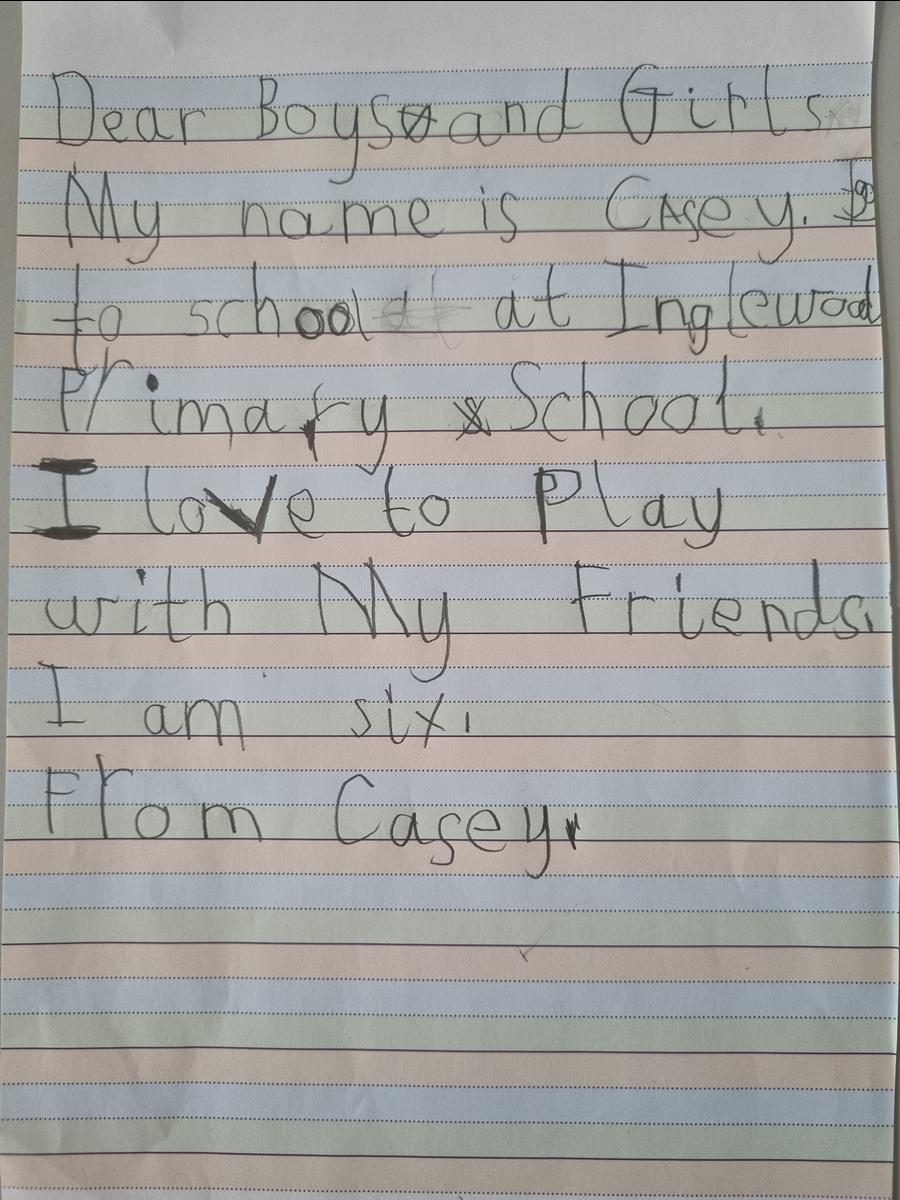 Dear Boys and Girls
My name is Casey. I go
to school at Inglewood
Primary School.
I love to Play
with My Friends.
I am six.
From Casey.